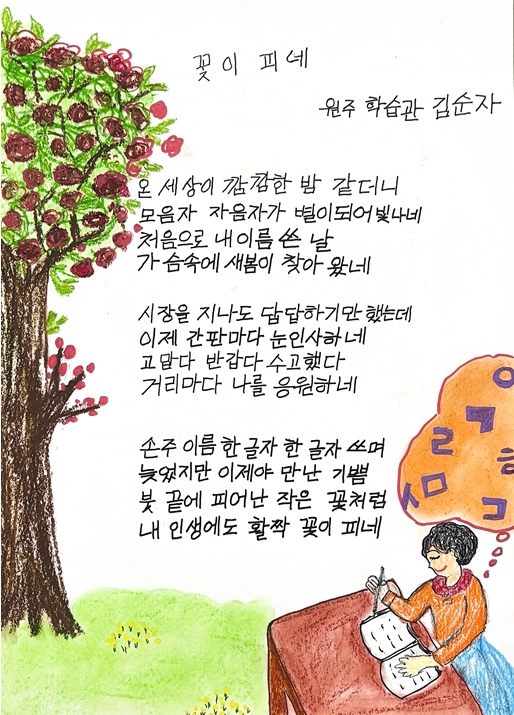 꽃이 피네
원주 학습관 김순자
온 세상이 깜깜한 밤 같더니
모음자 자음자가 별이되어 빛나네
처음으로 내 이름 쓴 날
가슴속에 새봄이 찾아 왔네
시장을 지나도 답답하기만 했는데
이제 간판마다 눈인사하네
고맙다 반갑다 수고했다
거리마다 나를 응원하네
손주 이름 한 글자 한 글자 쓰며
늦었지만 이제야 만난 기쁨
붓 끝에 피어난 작은 꽃처럼
내 인생에도 활짝 꽃이 피네
ㅇ
ㄹ ㄱ
ㅎ
ㅅ ㅁ ㄷ